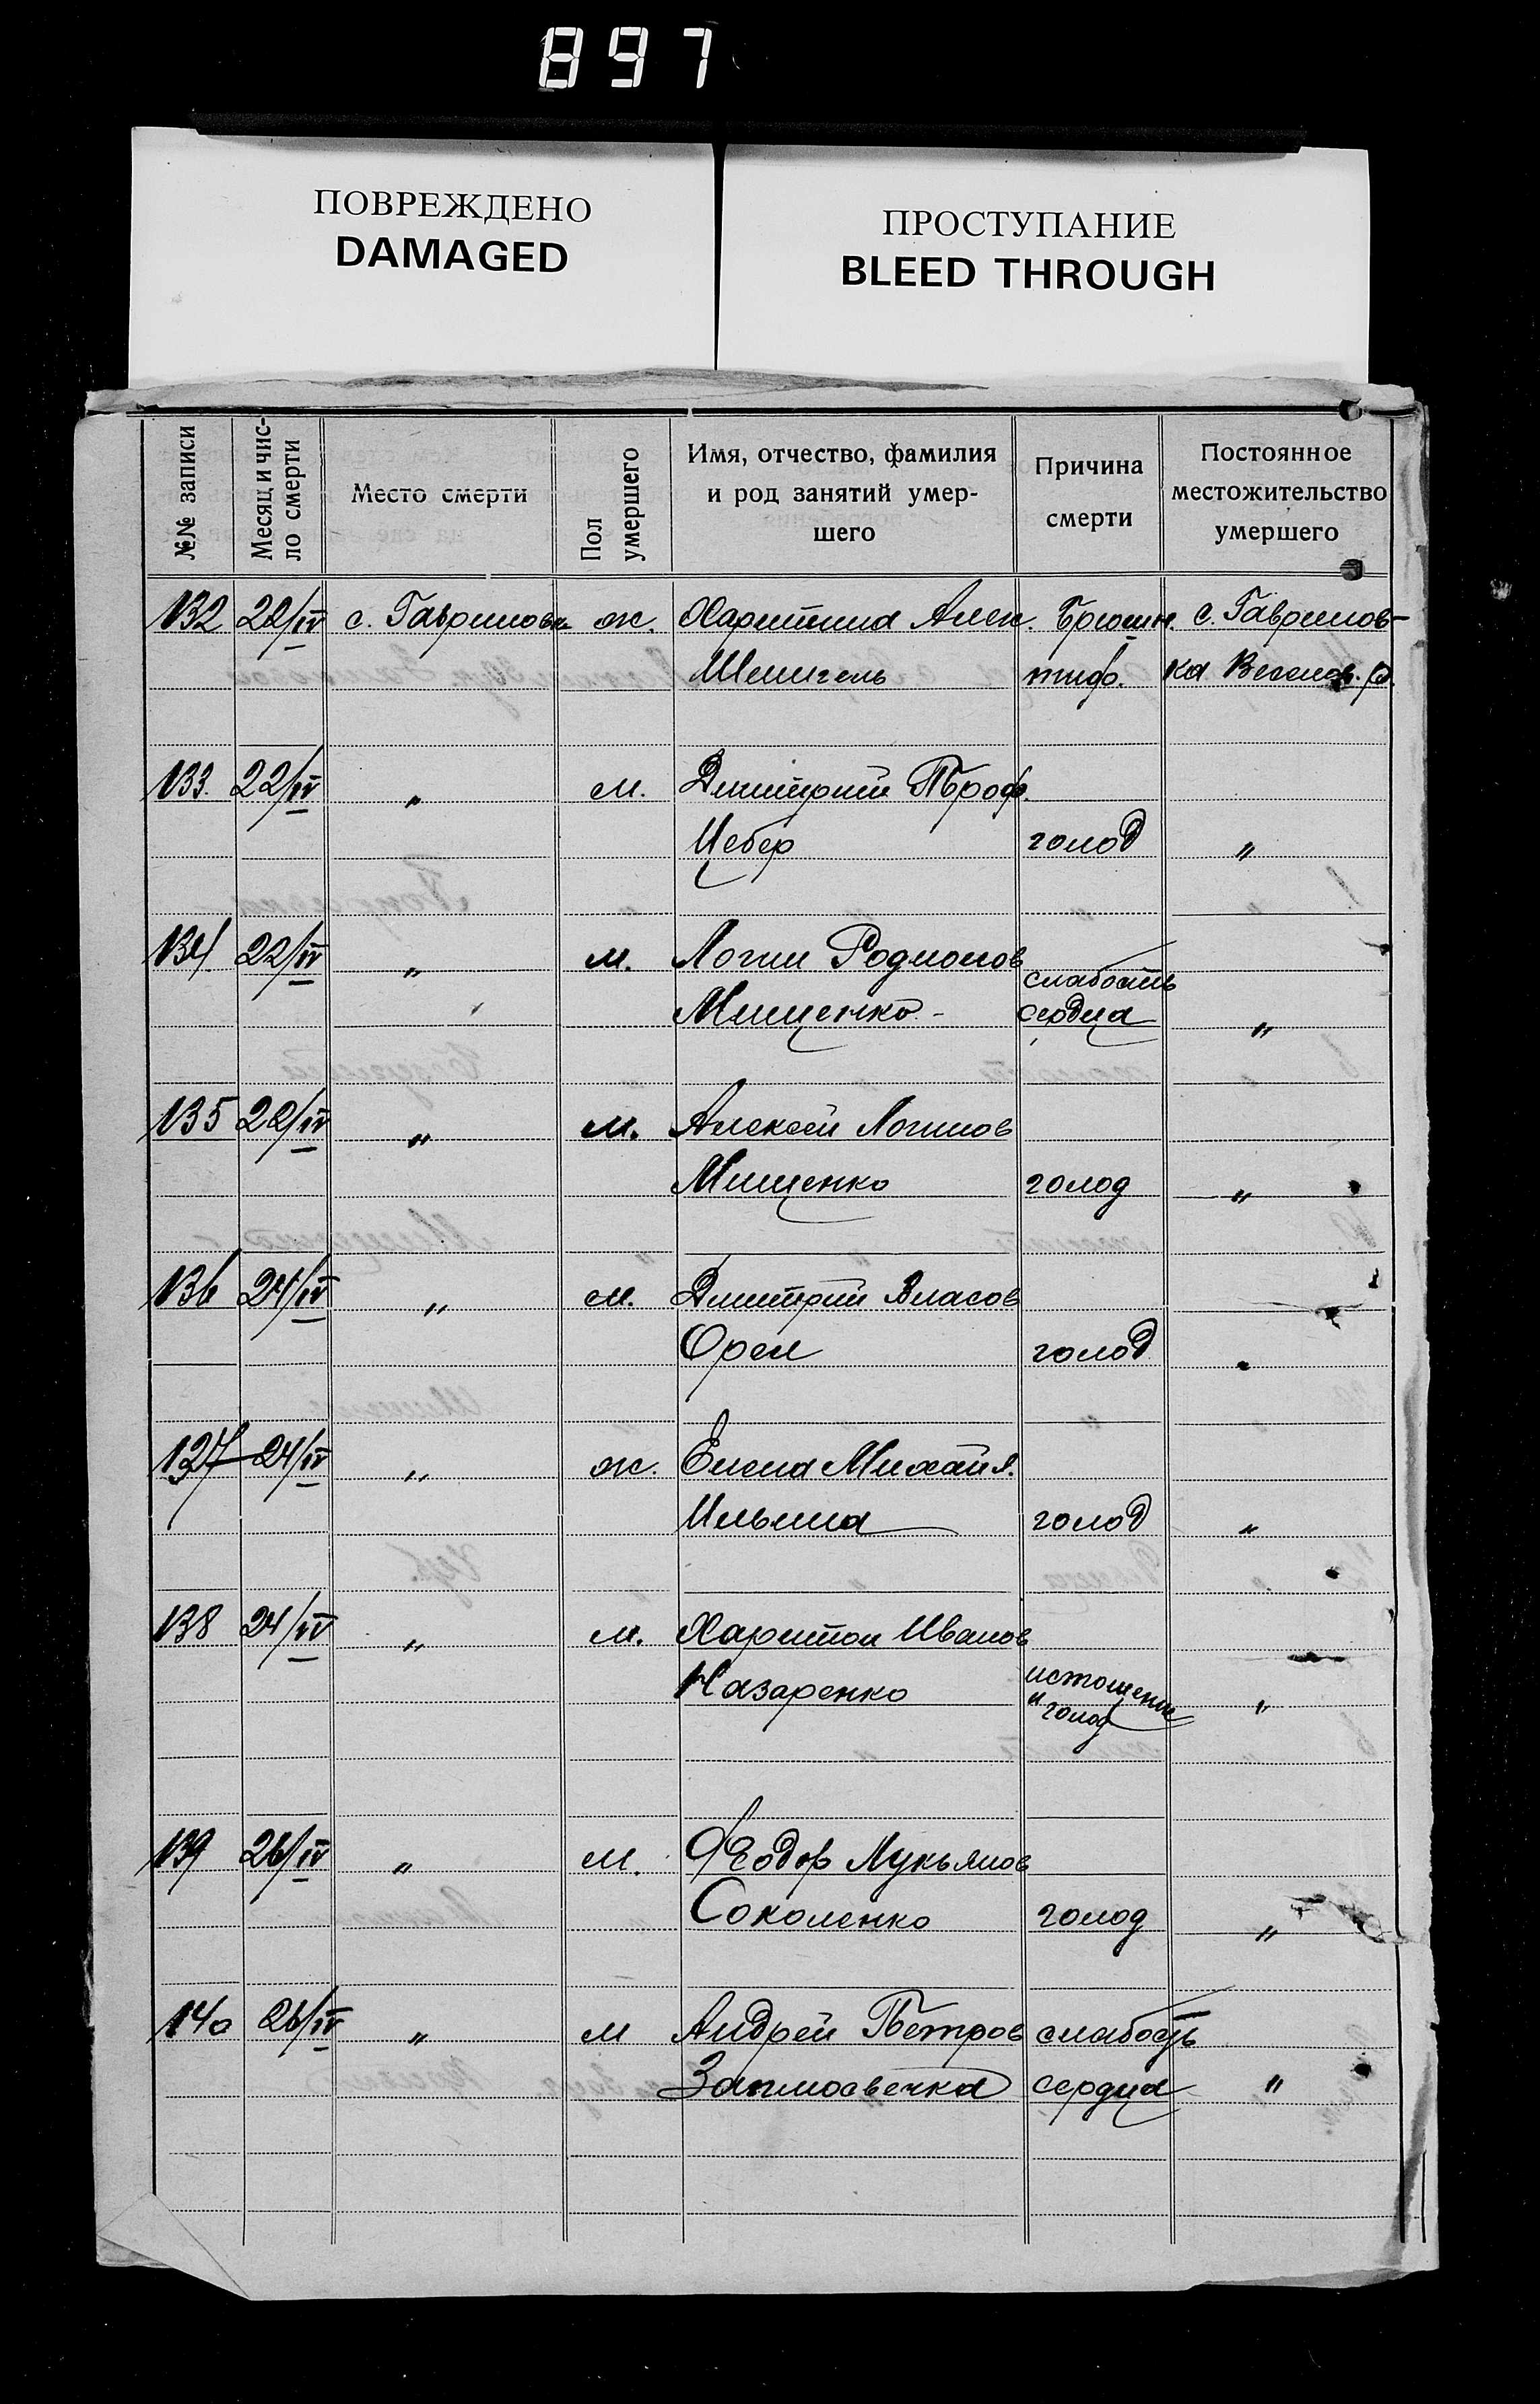 897
ПОВРЕЖДЕНО
DAMAGED
ПРОСТУПАНИЕ
BLEED THROUGH
№№ записи
Месяц и чис-
ло смерти
Место смерти
Пол
умершего
Имя, отчество, фамилия
и род занятий умер-
шего
Причина
смерти
Постоянное
местожительство
умершего
132 22/IV с. Гавриловка ж. Харитина Алек. Брюшн. с. Гаврилов-
Шенгель тиф. ка Веселов. р.
133. 22/IV " м. Дмитрий Проф.
Цебер голод "
134. 22/IV " м. Логин Родионов слабость
Мищенко сердца "
135 22/IV " м. Алексей Логинов
Мищенко голод "
136 24/IV " м. Дмитрий Власов
Орел голод "
137 24/IV " ж. Елена Михайл.
Ильина голод "
138 24/IV " м. Харитон Иванов
Назаренко истощение "
и голод
139 26/IV " м. Феодор Лукьянов
Соколенко голод "
140 26/IV " м Андрей Петров слабость
сердца "